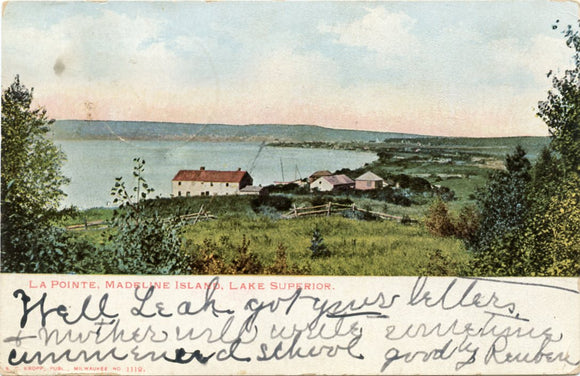 LA POINTE, MADELINE ISLAND, LAKE SUPERIOR.
Well Leah, got your letters,
& mother will write sometime
commenced school goodby Reuben
E. C. KROPP, PUBL., MILWAUKEE NO. 1112.